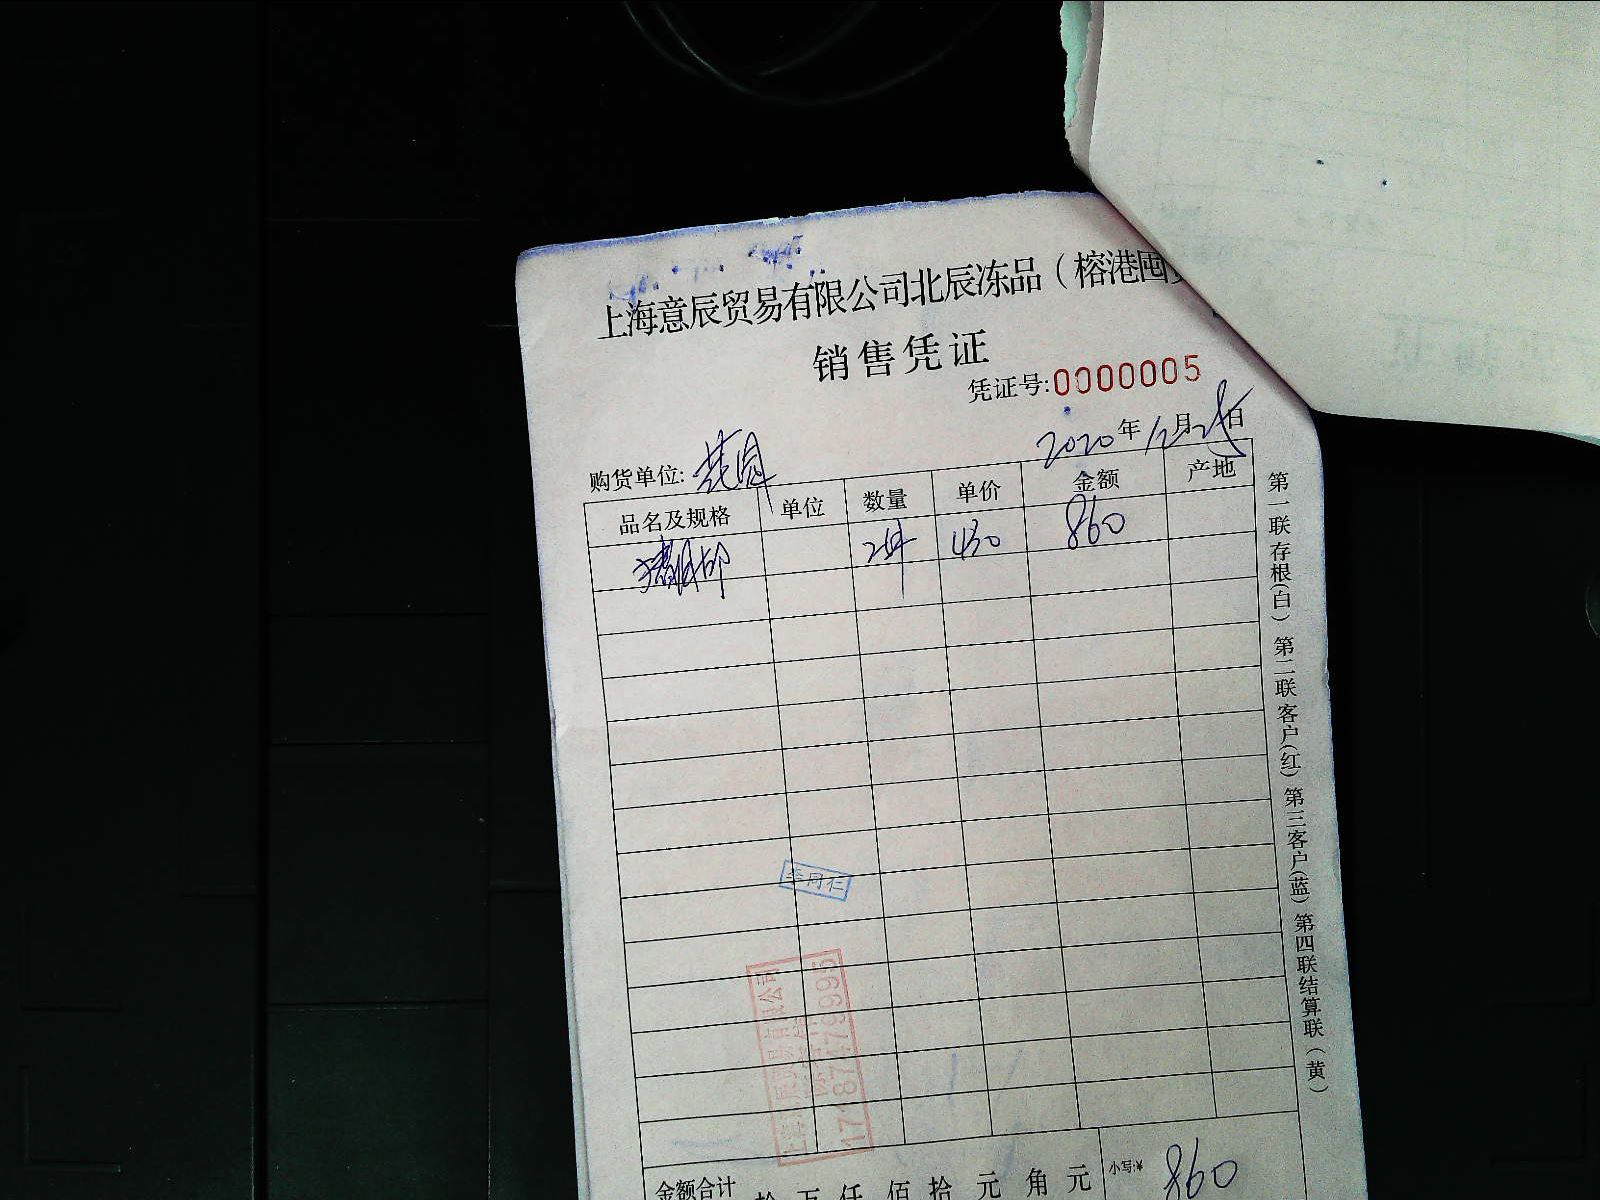 上海意辰贸易有限公司北辰冻品（榕港囤
销售凭证
凭证号:0000005
2020年12月25日
购货单位:
品名及规格 单位 数量 单价 金额 产地
2件 430 860
李同仁
17187479995
金额合计 拾 万 仟 佰 拾 元 角 元 小写:¥ 860
第一联存根(白) 第二联客户(红) 第三客户(蓝) 第四联结算联(黄)